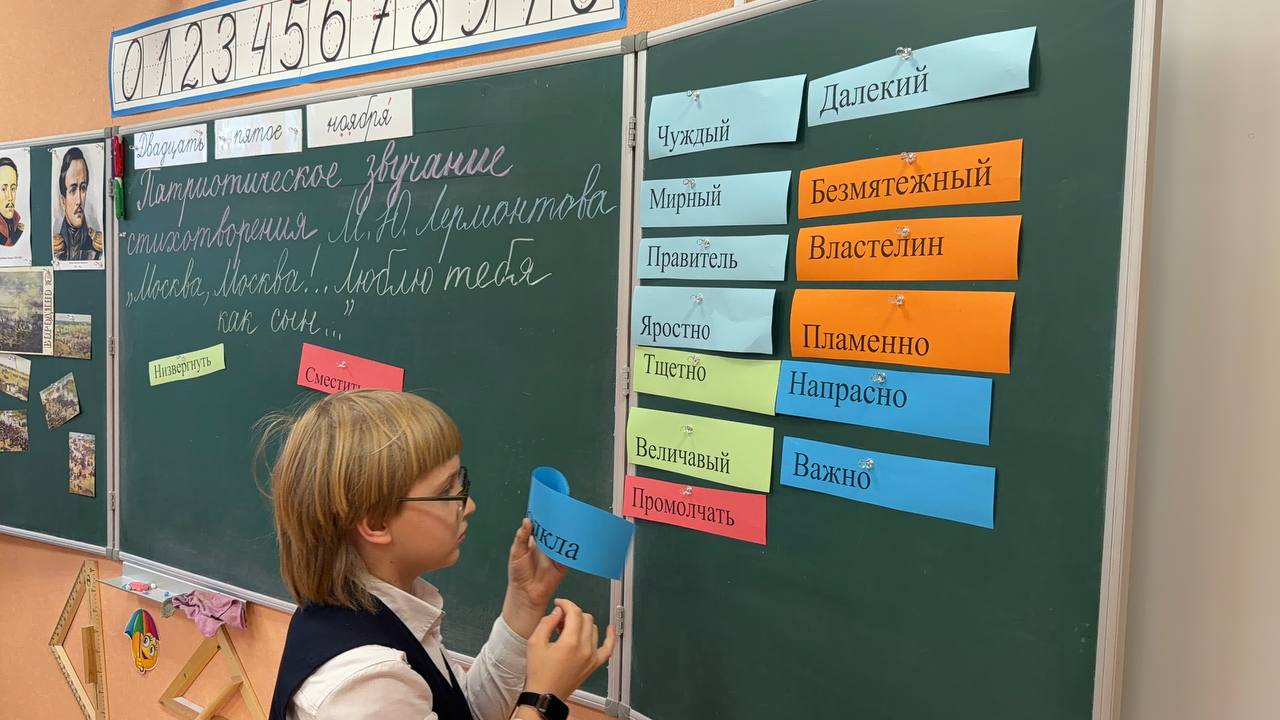 0 1 2 3 4 5 6 7 8 9 10
Двадцать пятое ноября
Патриотическое звучание
стихотворения М. Ю. Лермонтова
„Москва, Москва!.. люблю тебя
как сын..."
Низвергнуть
Сместить
Чуждый
Далекий
Мирный
Безмятежный
Правитель
Властелин
Яростно
Пламенно
Тщетно
Напрасно
Величавый
Важно
Промолчать